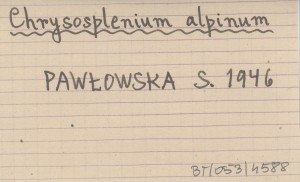 Chrysosplenium alpinum
PAWŁOWSKA S. 1946
BT/053/4588